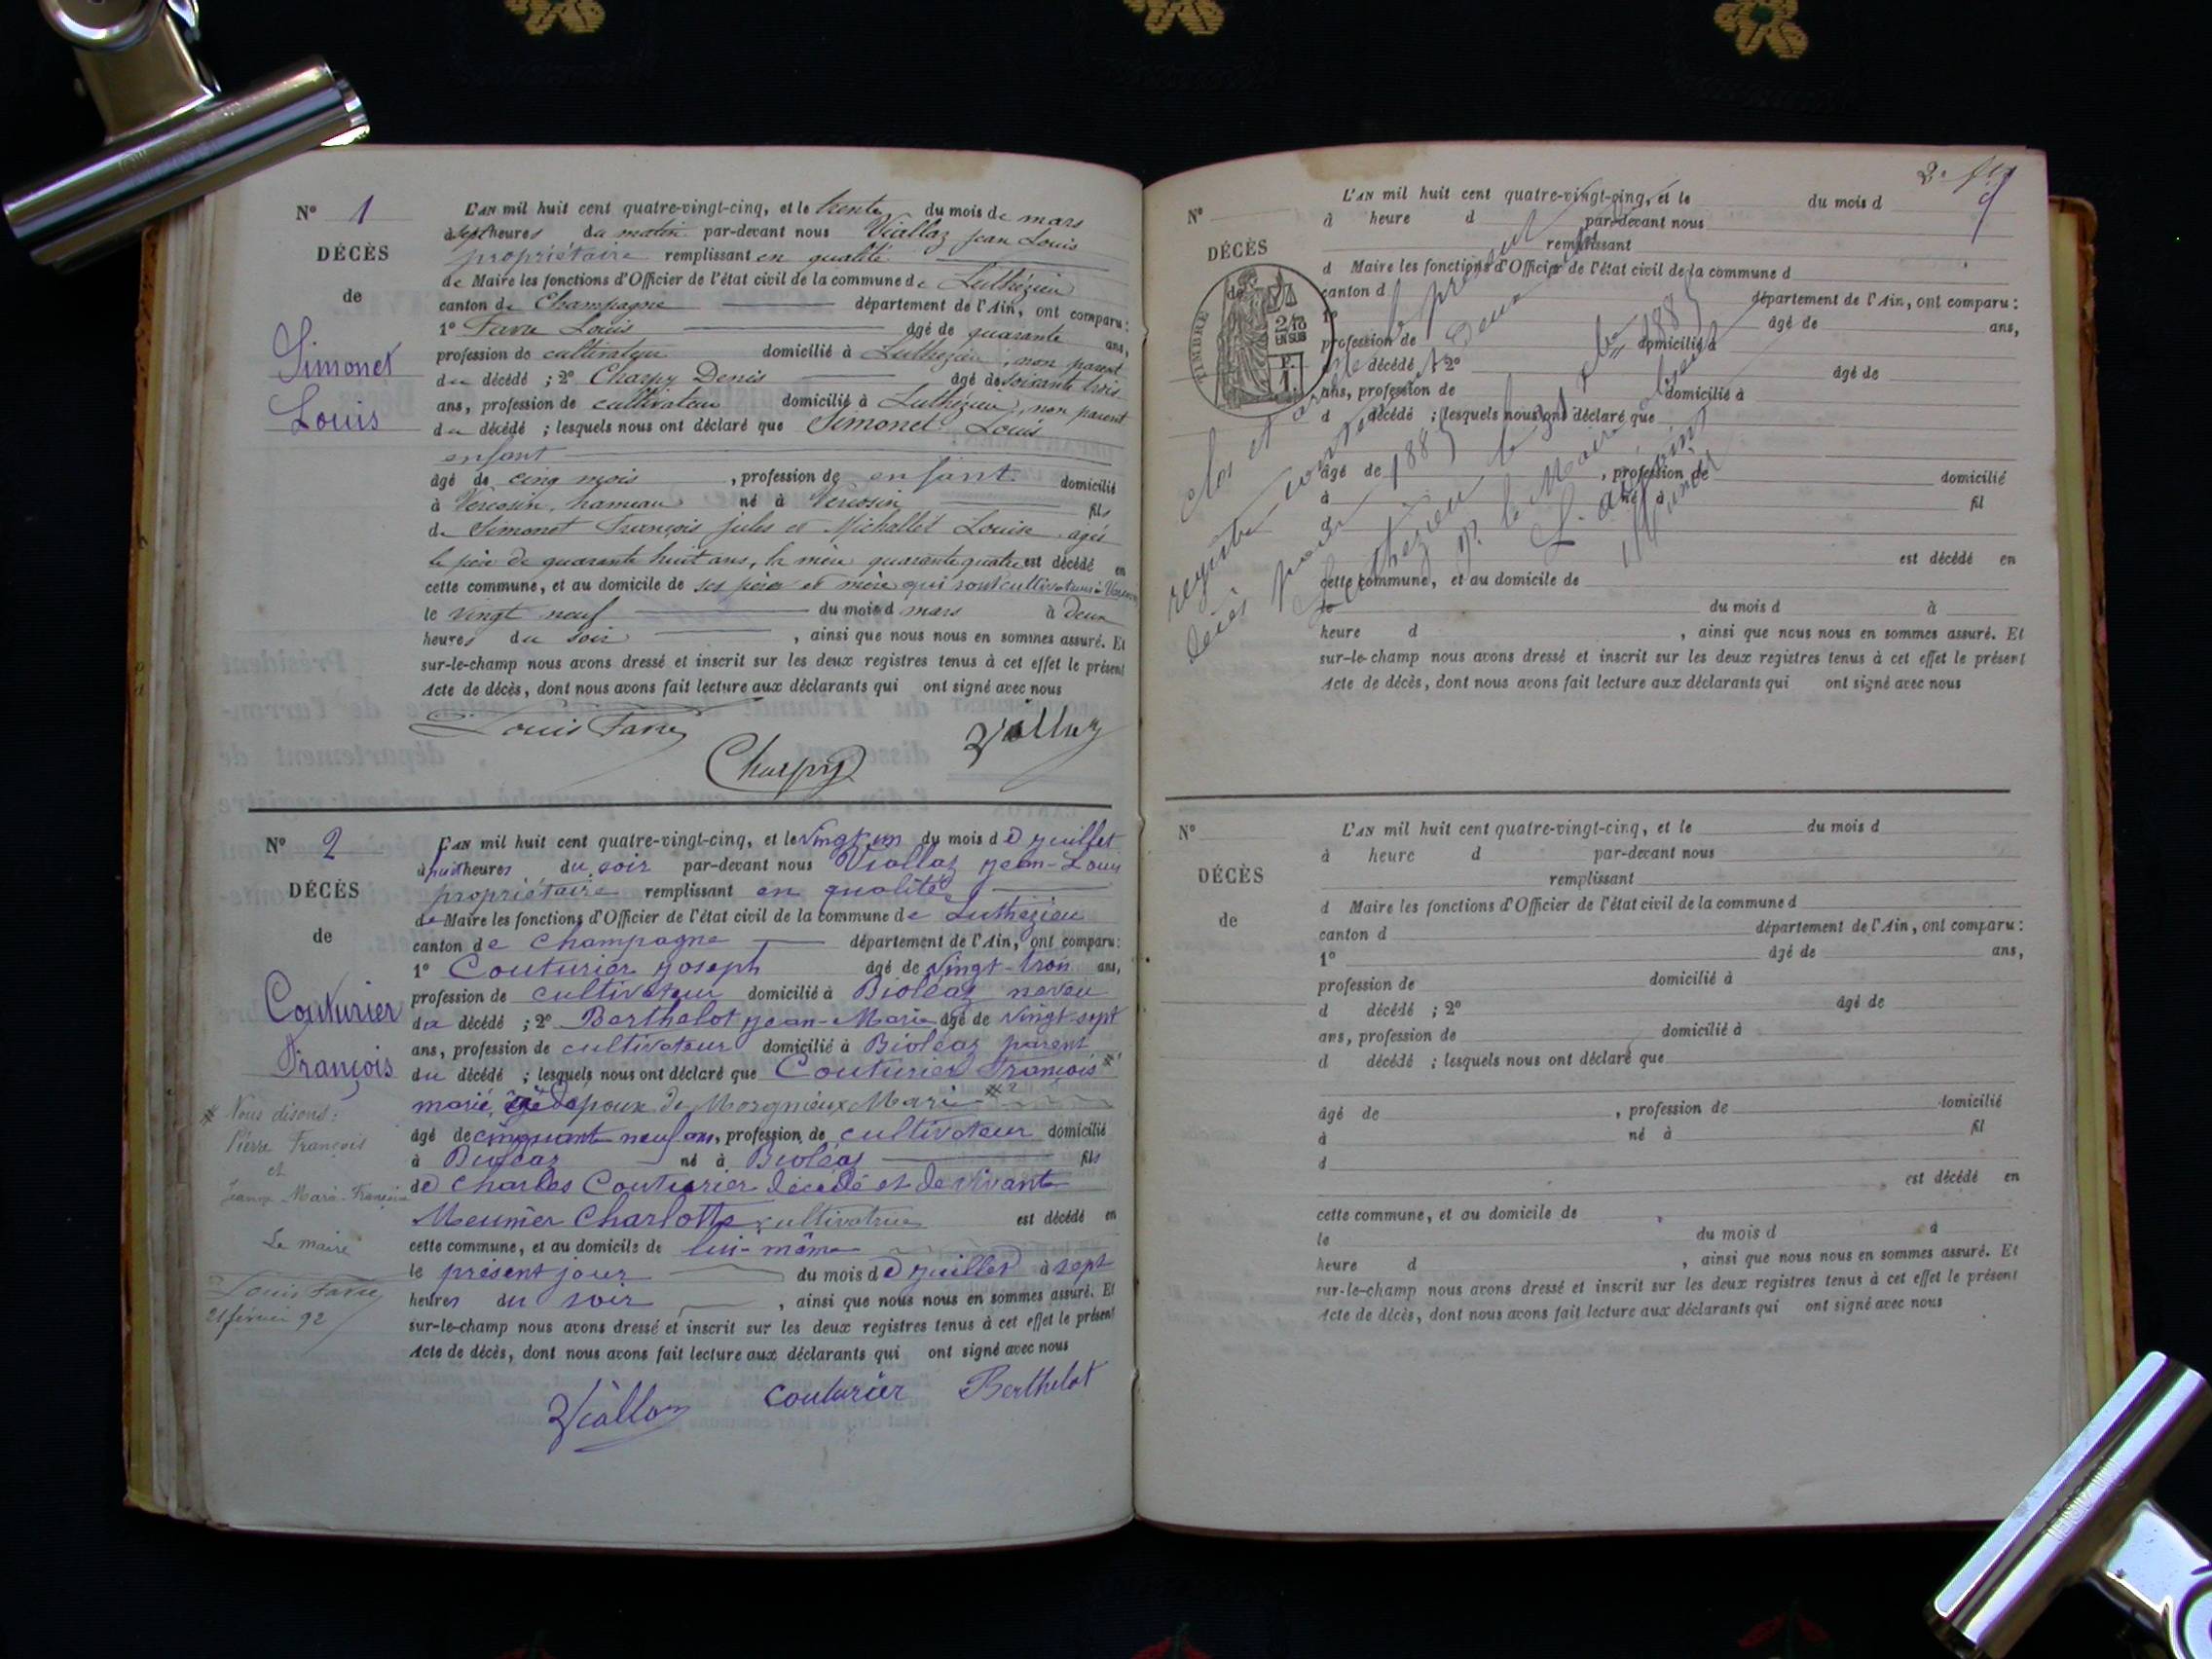 N° 1
DÉCÈS
de
Simonet
Louis
L'AN mil huit cent quatre-vingt-cinq, et le trente du mois de mars
à sept heures du matin par-devant nous Viallaz Jean Louis
propriétaire remplissant en qualité
de Maire les fonctions d'Officier de l'état civil de la commune de Luthézieu
canton de Champagne département de l'Ain, ont comparu:
1° Favre Louis âgé de quarante ans,
profession de cultivateur domicilié à Luthézieu, non parent
du décédé ; 2° Charpy Denis âgé de soixante trois
ans, profession de cultivateur domicilié à Luthézieu, non parent
du décédé ; lesquels nous ont déclaré que Simonet Louis
enfant
âgé de cinq mois, profession de enfant domicilié
à Vercosin, hameau né à Vercosin fils
de Simonet François Jules et Michallet Louise, agés
le père de quarante huit ans, la mère quarante quatre est décédé en
cette commune, et au domicile de ses père et mère qui sont cultivateurs à
le vingt neuf du mois d mars à deux
heures du soir, ainsi que nous nous en sommes assuré. Et
sur-le-champ nous avons dressé et inscrit sur les deux registres tenus à cet effet le présent
Acte de décès, dont nous avons fait lecture aux déclarants qui ont signé avec nous
Louis Favre
Viallaz
Charpy
N° 2
DÉCÈS
de
Couturier
François
# Nous disons:
Pierre François
et
Jeanne Marie-Françoise
Le maire
Louis Favre
21 février 92
L'AN mil huit cent quatre-vingt-cinq, et le vingt un du mois de Juillet
à huit heures du soir par-devant nous Viallaz Jean-Louis
propriétaire remplissant en qualité
de Maire les fonctions d'Officier de l'état civil de la commune de Luthézieu
canton de Champagne département de l'Ain, ont comparu:
1° Couturier Joseph âgé de vingt-trois ans,
profession de cultivateur domicilié à Bioléaz neveu
du décédé ; 2° Berthelot Jean-Marie âgé de vingt-sept
ans, profession de cultivateur domicilié à Bioléaz parent
du décédé ; lesquels nous ont déclaré que Couturier François #1
marié, époux de Morgnieux Marie #2
âgé de cinquante neuf ans, profession de cultivateur domicilié
à Bioléaz né à Bioléaz fils
de Charles Couturier décédé et de vivante
Meunier Charlotte cultivatrice est décédé en
cette commune, et au domicile de lui-même
le présent jour du mois de Juillet à sept
heures du soir, ainsi que nous nous en sommes assuré. Et
sur-le-champ nous avons dressé et inscrit sur les deux registres tenus à cet effet le présent
Acte de décès, dont nous avons fait lecture aux déclarants qui ont signé avec nous
Viallaz Couturier Berthelot
N°
DÉCÈS
de
TIMBRE
2/10
EN SUS
P.
1.
L'AN mil huit cent quatre-vingt-cinq, et le du mois d
à heure d par-devant nous
remplissant
d Maire les fonctions d'Officier de l'état civil de la commune d
canton d département de l'Ain, ont comparu:
1° âgé de ans,
profession de domicilié à
d décédé ; 2° âgé de
ans, profession de domicilié à
d décédé ; lesquels nous ont déclaré que
âgé de , profession de domicilié
à né à fil
d
est décédé en
cette commune, et au domicile de
le du mois d à
heure d , ainsi que nous nous en sommes assuré. Et
sur-le-champ nous avons dressé et inscrit sur les deux registres tenus à cet effet le présent
Acte de décès, dont nous avons fait lecture aux déclarants qui ont signé avec nous
Clos et arrêté le présent
registre deux
décès pour 1885
Luthézieu le 1885
p. le Maire
L'adjoint
N°
DÉCÈS
de
L'AN mil huit cent quatre-vingt-cinq, et le du mois d
à heure d par-devant nous
remplissant
d Maire les fonctions d'Officier de l'état civil de la commune d
canton d département de l'Ain, ont comparu:
1° âgé de ans,
profession de domicilié à
d décédé ; 2° âgé de
ans, profession de domicilié à
d décédé ; lesquels nous ont déclaré que
âgé de , profession de domicilié
à né à fil
d
est décédé en
cette commune, et au domicile de
le du mois d à
heure d , ainsi que nous nous en sommes assuré. Et
sur-le-champ nous avons dressé et inscrit sur les deux registres tenus à cet effet le présent
Acte de décès, dont nous avons fait lecture aux déclarants qui ont signé avec nous